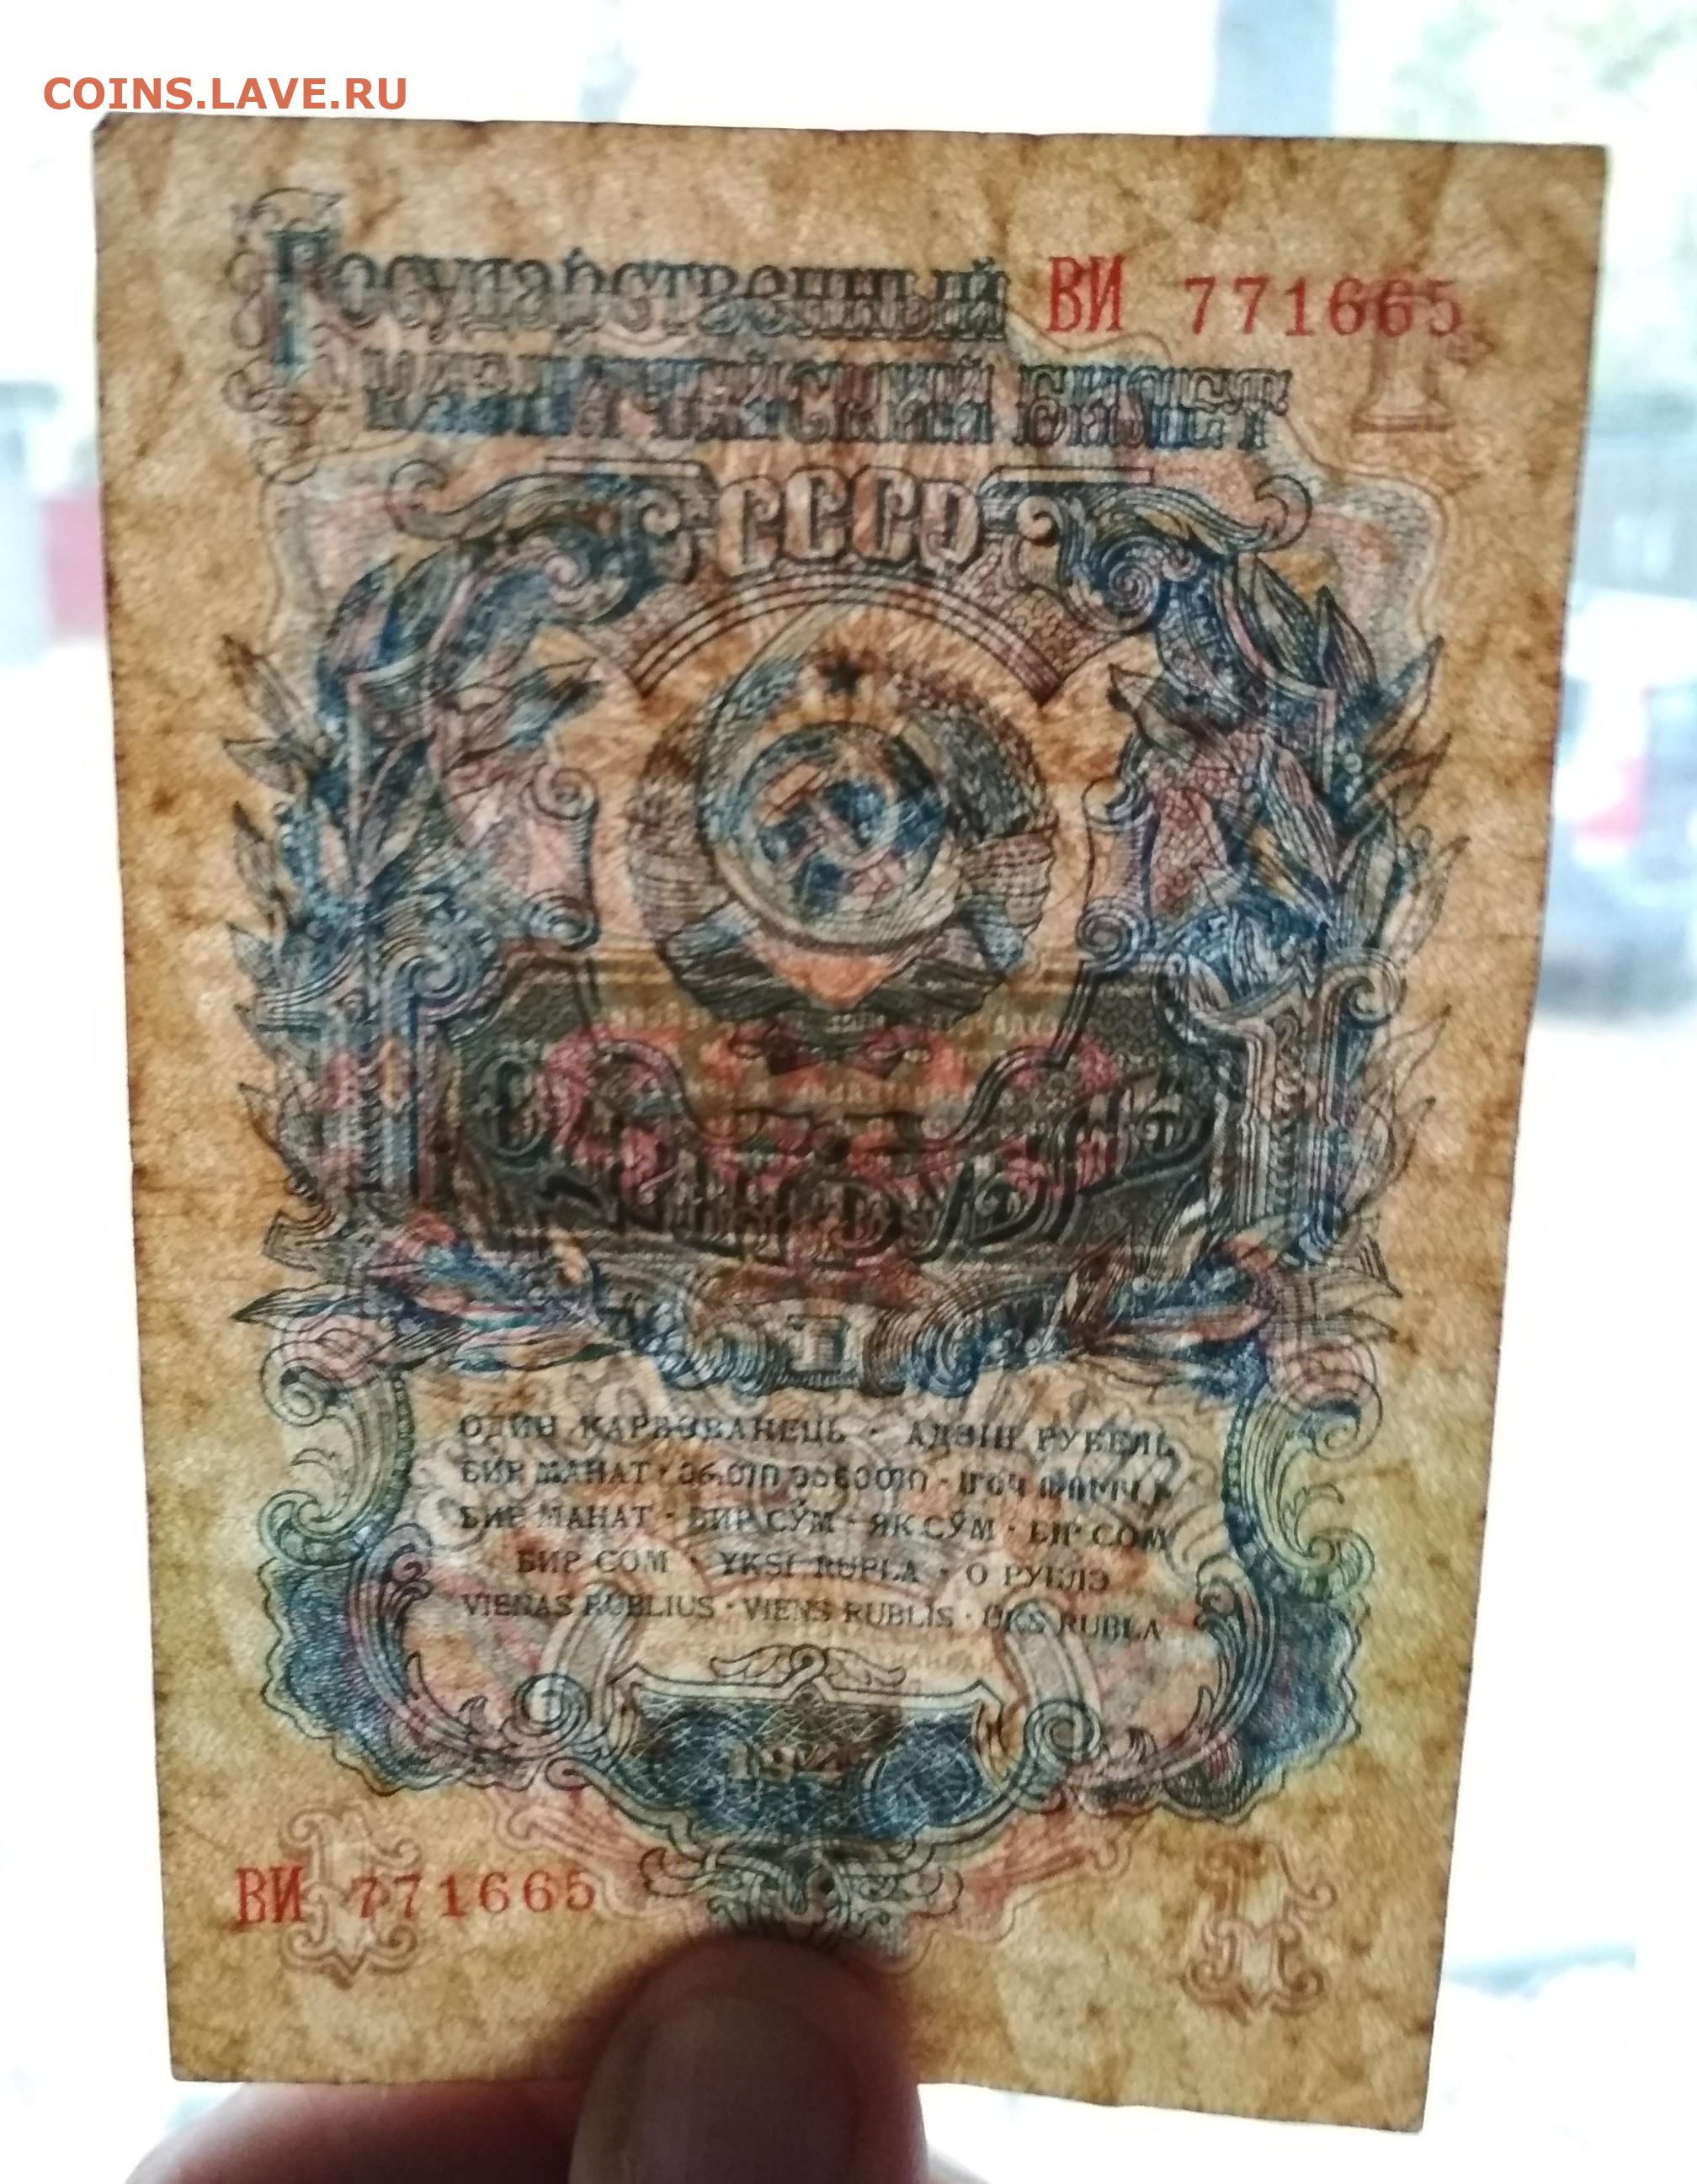 COINS.LAVE.RU
Государственный ВИ 771665
1
казначейский билет
СССР
Один
рубль
1
ОДИН КАРБОВАНЕЦЬ · АДЗІН РУБЕЛЬ
БИР МАНАТ · ᲔᲠᲗᲘ მანეთი ·
БИР МАНАТ · БИР СЎМ · ЯК СӮМ · БІР СОМ
БИР СОМ · YKSI RUPLA · О РУБЛЭ
VIENAS RUBLIUS · VIENS RUBLIS · ÜKS RUBLA
1947
ВИ 771665